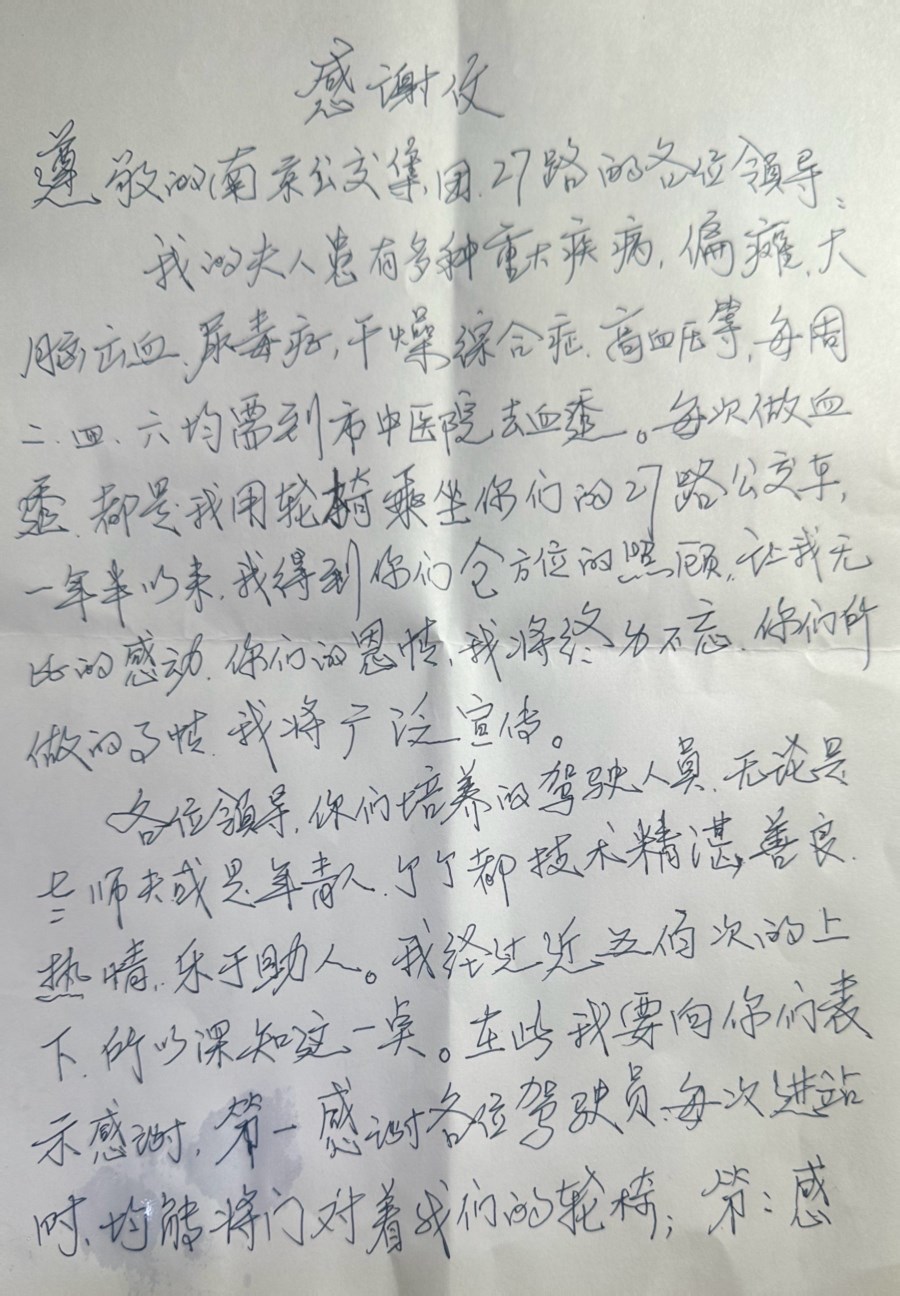 感谢信
尊敬的南京公交集团、27路的各位领导：
我的夫人患有多种重大疾病，偏瘫、大
脑出血、尿毒症，干燥综合症、高血压等，每周
二、四、六均需到市中医院去血透。每次做血
透，都是我用轮椅乘坐你们的27路公交车，
一年半以来，我得到你们全方位的照顾，让我无
比的感动，你们的恩情，我将终身不忘，你们所
做的事情，我将广泛宣传。
各位领导，你们培养的驾驶人员，无论是
老师夫或是年青人，个个都技术精湛，善良、
热情，乐于助人。我经过近五佰次的上
下，所以深知这一点。在此我要向你们表
示感谢，第一感谢各位驾驶员，每次进站
时，均能将门对着我们的轮椅；第二感